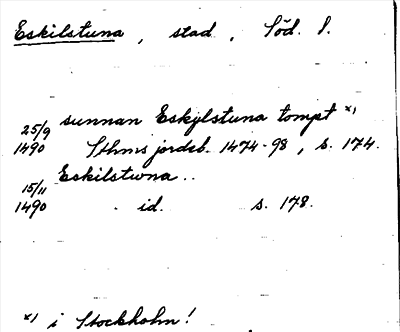 Eskilstuna, stad, Söd. l.
sunnan Eskylstuna tompt x)
25/9
1490 Sthms jordeb. 1474-98, s. 174.
Eskilstwna..
15/11
1490 - id. s. 178.
x) i Stockholm!